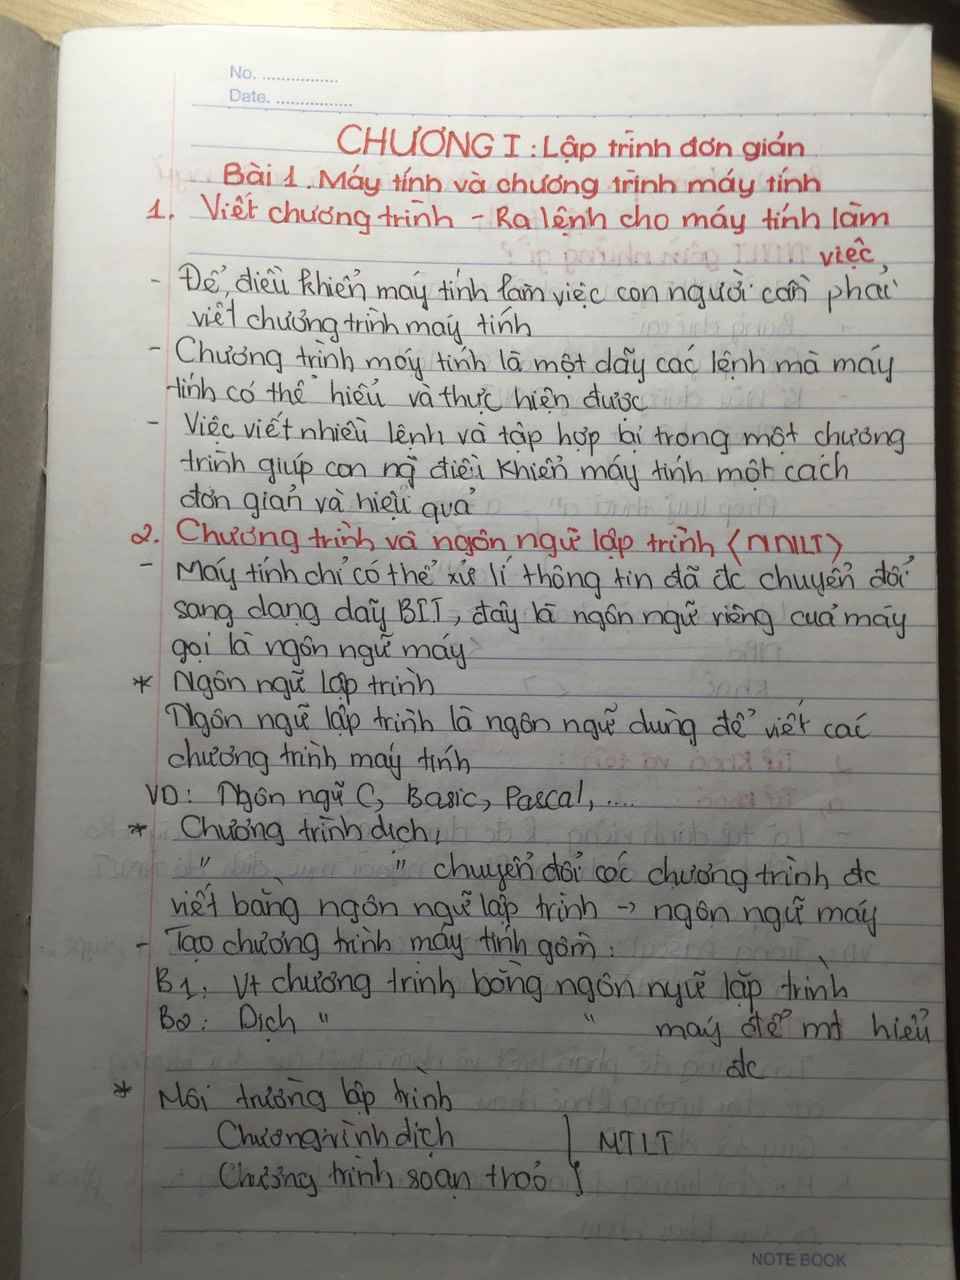 No. ................
Date. ................
CHƯƠNG I : Lập trình đơn giản
Bài 1. Máy tính và chương trình máy tính
1. Viết chương trình - Ra lệnh cho máy tính làm
việc
- Để điều khiển máy tính làm việc con người cần phải
viết chương trình máy tính
- Chương trình máy tính là một dãy các lệnh mà máy
tính có thể hiểu và thực hiện được
- Việc viết nhiều lệnh và tập hợp lại trong một chương
trình giúp con ng` điều khiển máy tính một cách
đơn giản và hiệu quả
2. Chương trình và ngôn ngữ lập trình (NNLT)
- Máy tính chỉ có thể xử lí thông tin đã đc chuyển đổi
sang dạng dãy BIT, đây là ngôn ngữ riêng của máy
gọi là ngôn ngữ máy
* Ngôn ngữ lập trình
Ngôn ngữ lập trình là ngôn ngữ dùng để viết các
chương trình máy tính
VD: Ngôn ngữ C, Basic, Pascal, ....
* Chương trình dịch
" " chuyển đổi các chương trình đc
viết bằng ngôn ngữ lập trình → ngôn ngữ máy
- Tạo chương trình máy tính gồm :
B1: Vt chương trình bằng ngôn ngữ lập trình
B2: Dịch " " máy để mt hiểu
đc
* Môi trường lập trình
Chương trình dịch } MTLT
Chương trình soạn thảo
NOTE BOOK